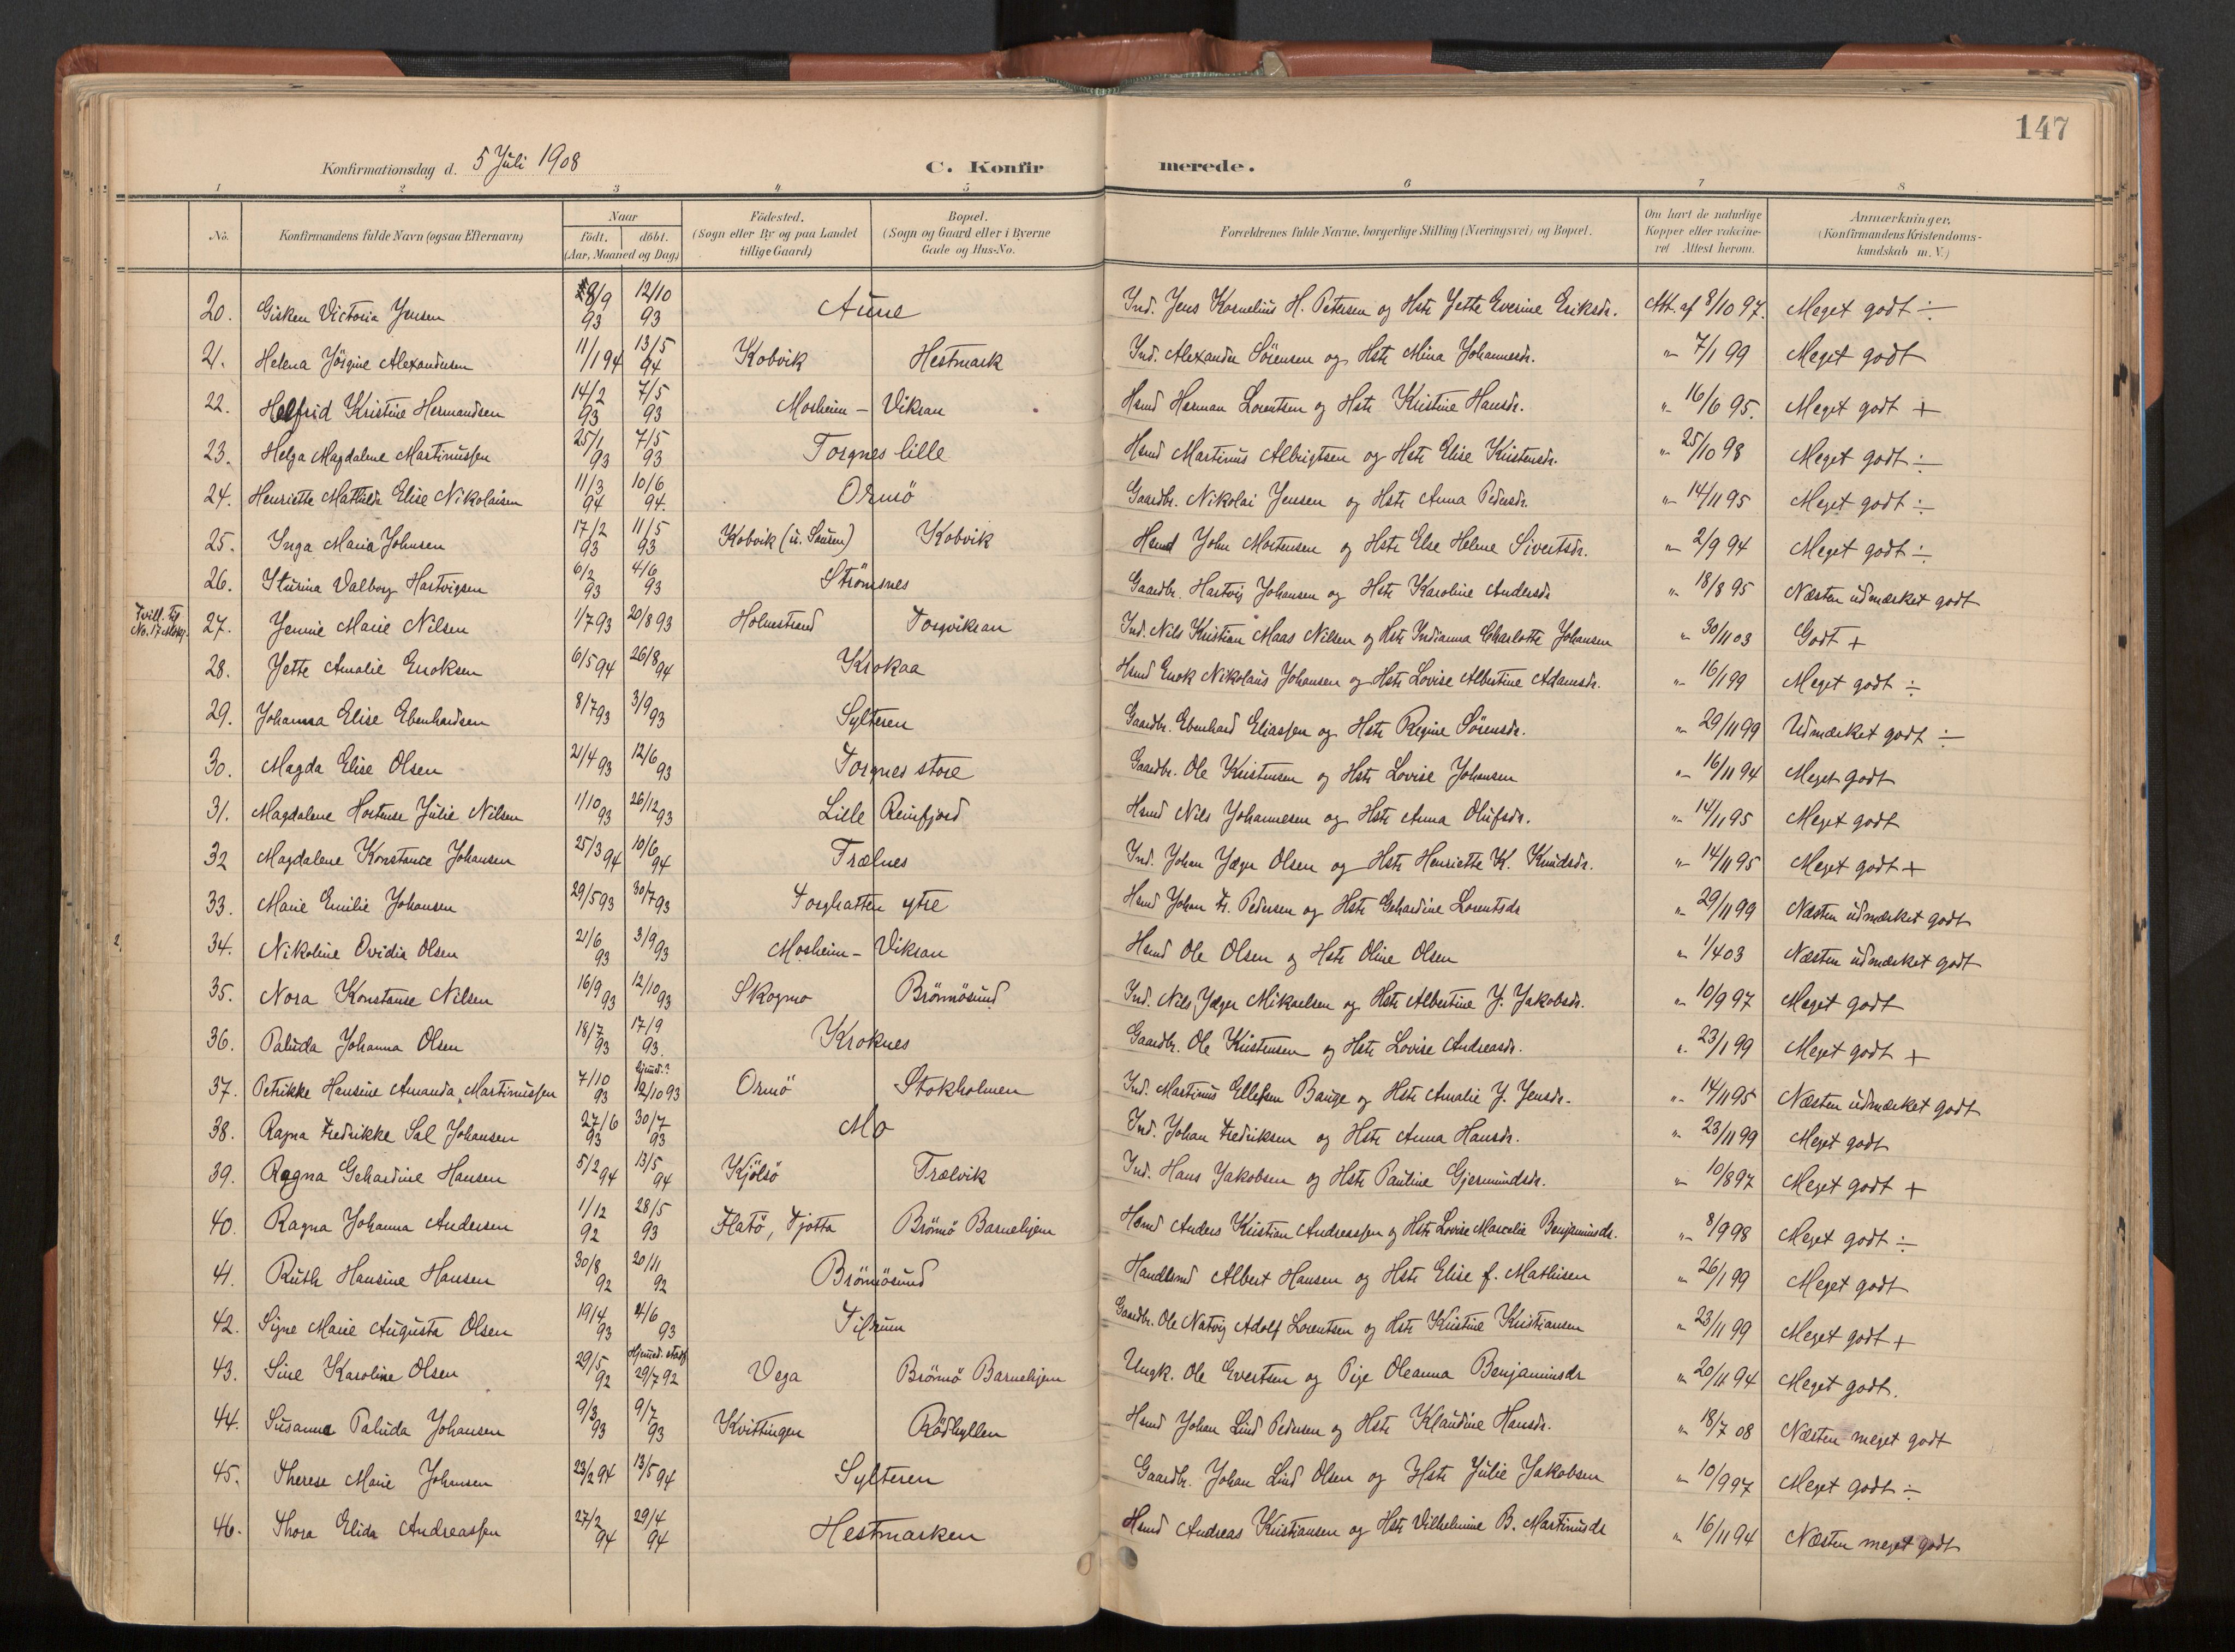 147
Konfirmationsdag d. 5 Juli 1908
C. Konfirmerede.
1 2 3 4 5 6 7 8
No. Konfirmandens fulde Navn (ogsaa Efternavn) Naar födt. döbt. (Aar, Maaned og Dag) Födested. (Sogn eller By og paa Landet tillige Gaard) Bopæl. (Sogn og Gaard eller i Byerne Gade og Hus-No. Forældrenes fulde Navne, borgerlige Stilling (Næringsvei) og Bopæl. Om havt de naturlige Kopper eller vakcineret Attest herom. Anmærkninger. (Konfirmandens Kristendomskundskab m. V.)
20. Gisken Victoria Jensen 28/9 93 12/10 93 Aune Ind. Jens Kornelius H. Petersen og Hstr Jette Everine Eriksdr. Att. af 8/10 97. Meget godt ÷
21. Helena Jörgine Alexandersen 11/1 94 13/5 94 Kobvik Hestmark Ind. Alexander Sörensen og Hstr Mina Johannesdr. " 7/1 99 Meget godt
22. Helfrid Kristine Hermandsen 14/2 93 7/5 93 Mosheim - Vikran Hsmd Herman Lorentsen og Hstr Kristine Hansdr. " 16/6 95. Meget godt +
23. Helga Magdalene Martinussen 25/1 93 7/5 93 Torgnes lille Hsmd Martinus Albrigtsen og Hstr Elise Kristensdr. " 25/10 98 Meget godt ÷
24. Henriette Mathilde Elise Nikolaisen 11/3 94 10/6 94. Ormö Gaardbr. Nikolai Jensen og Hstr Anna Pedersdr. " 14/11 95 Meget godt ÷
25. Inga Maria Johnsen 17/2 93 11/5 93 Kobvik Kobvik Hsmd John Mortensen og Hstr Else Helene Sivertsdr. " 2/9 94 Meget godt ÷
26. Sturina Valborg Hartvigsen 6/2 93 4/6 93 Strömsnes Gaardbr. Hartvig Johansen og Hstr Karoline Andersdr " 18/8 95 Næsten udmærket godt
Tvill. til No. 17
27. Jennie Marie Nilsen 1/7 93 20/8 93 Holmestrand Torgvikran Ind. Nils Kristian Maas Nilsen og Hstr Indianna Charlotte Johansen " 30/11 03 Godt +
28. Jette Amalie Enoksen 6/5 94 26/8 94 Krokaa Hsmd Enok Nikolaus Johansen og Hstr Lovise Albertine Adamsdr. " 16/1 99 Meget godt ÷
29. Johanna Elise Ebenhardsen 8/7 93 3/9 93 Sylteren Gaardbr. Ebenhard Eliassen og Hstr Regine Sörensdr. " 29/11 99 Udmærket godt ÷
30. Magda Elise Olsen 21/4 93 12/6 93 Torgnes store Gaardbr. Ole Kristensen og Hstr Lovise Johansen " 16/11 94 Meget godt
31. Magdalene Hortense Julie Nilsen 1/10 93 26/12 93 Lille Reinfjord Hsmd Nils Johannesen og Hstr Anna Olufsdr. " 14/11 95 Meget godt
32 Magdalene Konstance Johansen 25/3 94 10/6 94 Trælnes Ind. Johan Jæger Olsen og Hstr Henriette K. Knudsdr. " 14/11 95 Meget godt +
33. Marie Emilie Johansen 29/5 93 30/7 93 Torghatten ytre Hsmd Johan Fr. Pedersen og Hstr Gehardine Lorentsdr " 29/11 99 Næsten udmærket godt
34. Nikoline Ovidia Olsen 21/6 93 3/9 93 Mosheim - Vikran Hsmd Ole Olsen og Hstr Oline Olsen " 1/4 03 Næsten udmærket godt
35. Nora Konstanse Nilsen 16/9 93 12/10 93 Skogmo Brönnösund Ind. Nils Jæger Mikaelsen og Hstr Albertine J. Jakobsdr. " 10/9 97 Meget godt
36. Paluda Johanna Olsen 18/7 93 17/9 93. Kroknes Gaardbr. Ole Kristensen og Hstr Lovise Andreasdr. " 23/1 99 Meget godt +
37. Petrikke Hansine Amanda Martinussen 7/10 93 hjemed.? 12/10 93 Ormö Stokholmen Ind. Martinus Ellefsen Bauge og Hstr Amalie J. Jensdr. " 14/11 95 Næsten udmærket godt
38. Ragna Fredrikke Sal Johansen 27/6 93 30/7 93 Mo Ind. Johan Fredriksen og Hstr Anna Hansdr. " 23/11 99 Meget godt
39. Ragna Gehardine Hansen 5/2 94 13/5 94 Kjölsö Trælvik Ind. Hans Jakobsen og Hstr Pauline Gjermundsdr. " 10/8 97 Meget godt +
40. Ragna Johanna Andersen 1/12 92 28/5 93 Flatö, Tjotta Brönnö Barnehjem Hsmd Anders Kristian Andreassen og Hstr Lovise Marcelie Benjaminsdr. " 8/9 98 Meget godt ÷
41. Ruth Hansine Hansen 30/8 92 20/11 92 Brönnösund Handlsmd Albert Hansen og Hstr Elise f. Mathisen " 26/1 99 Meget godt
42. Signe Marie Augusta Olsen 19/4 93 4/6 93 Tilrum Gaardbr. Ole Natvig Adolf Lorentsen og Hstr Kristine Kristiansen " 23/11 99 Meget godt +
43. Sine Karoline Olsen 29/5 92 Hjemed. stadf. 29/7 92 Vega Brönnö Barnehjem Ungk. Ole Evertsen og Pige Oleanna Benjaminsdr " 20/11 94 Meget godt.
44. Susanna Paluda Johansen 9/3 93 9/7 93 Kvittingen Rödhyllen Hsmd Johan Lind Pedersen og Hstr Klaudine Hansdr. " 18/7 08 Næsten meget godt
45. Therese Marie Johansen 23/2 94 13/5 94 Sylteren Gaardbr. Johan Lind Olsen og Hstr Julie Jakobsen " 10/9 97 Meget godt ÷
46. Thora Elida Andreassen 27/2 94 29/4 94 Hestmarken Hsmd Andreas Kristiansen og Hstr Vilhelmine B. Martinusdr " 16/11 94 Næsten meget godt